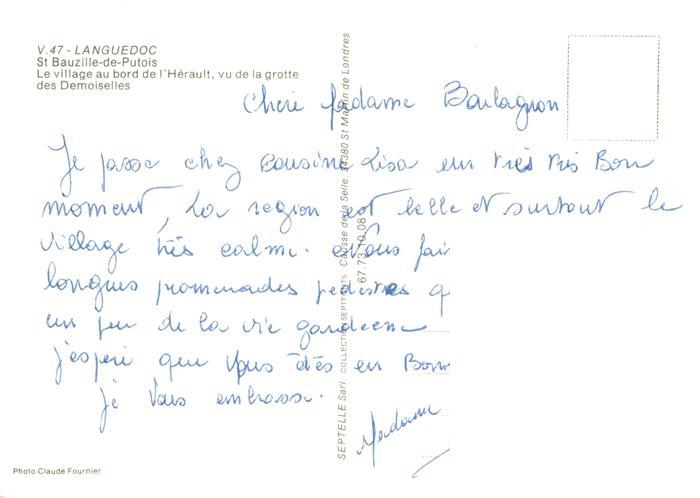 V.47 - LANGUEDOC
St Bauzille-de-Putois
Le village au bord de l'Hérault, vu de la grotte
des Demoiselles
Cheri Madame Boulagnon
Je passe chez cousine Lisa un très très Bon
moment, La region est belle et surtout le
village très calme. Nous fai
longues promenades pedestres q
un peu de la vie
j'esperé que vous êtes en Bonn
je vous embrasse.
Madame
SEPTELLE Sarl. COLLECTION Causse de la Selle. 34380 St Martin de Londres
67.73.10.08
Photo Claude Fournier